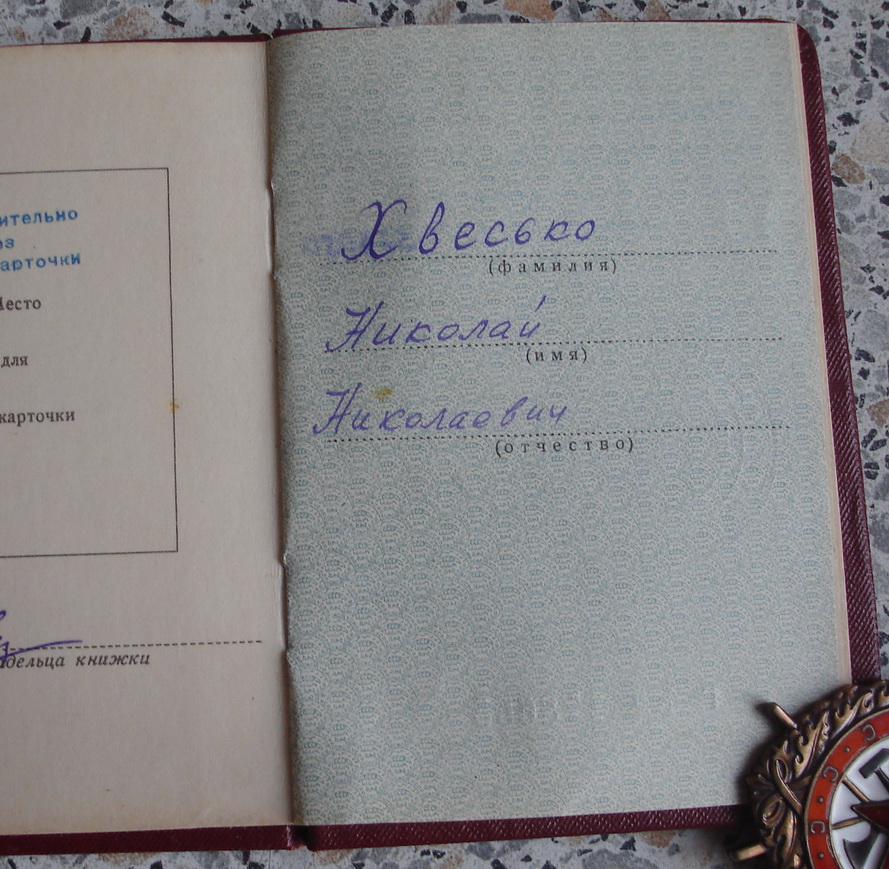 ительно
ез
арточки
Место
для
карточки
адельца книжки
Хвесько
(фамилия)
Николай
(имя)
Николаевич
(отчество)
С
С